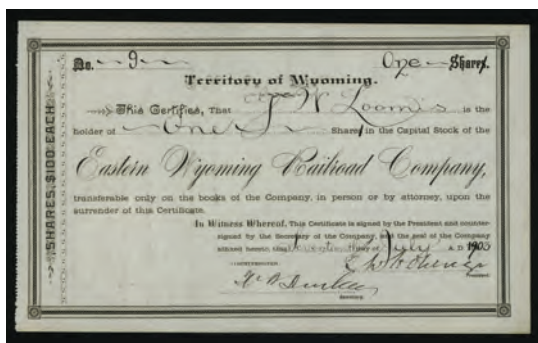 No. 9 One Shares.
Territory of Wyoming.
This Certifies, That J W Loomis is the
holder of One Shares in the Capital Stock of the
Eastern Wyoming Railroad Company,
transferable only on the books of the Company, in person or by attorney, upon the
surrender of this Certificate.
In Witness Whereof, This Certificate is signed by the President and counter-
signed by the Secretary of the Company, and the seal of the Company
affixed hereto this day of July A.D. 1903
COUNTERSIGNED,
President.
Secretary.
SHARES, $100 EACH